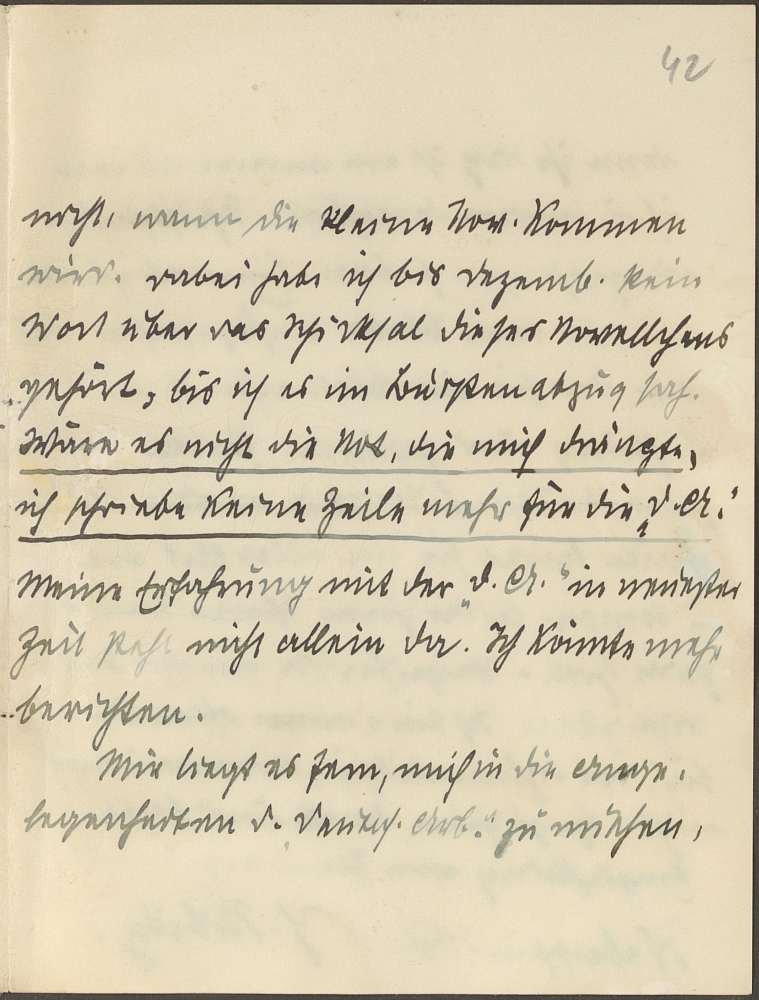 42
nicht, wann die kleine Nov. kommen
wird. Dabei habe ich bis Dezemb. kein
Wort über das Schicksal dieses Novellchens
gehört, bis ich es im Bürstenabzug sah.
Wäre es nicht die Not, die mich drängte,
ich schriebe keine Zeile mehr für die „D. A.“
Meine Erfahrung mit der „D. A.“ in neuester
Zeit steht nicht allein da. Ich könnte mehr
berichten.
Mir liegt es fern, mich in die Ange-
legenheiten d. „Deutsch. Arb.“ zu mischen,